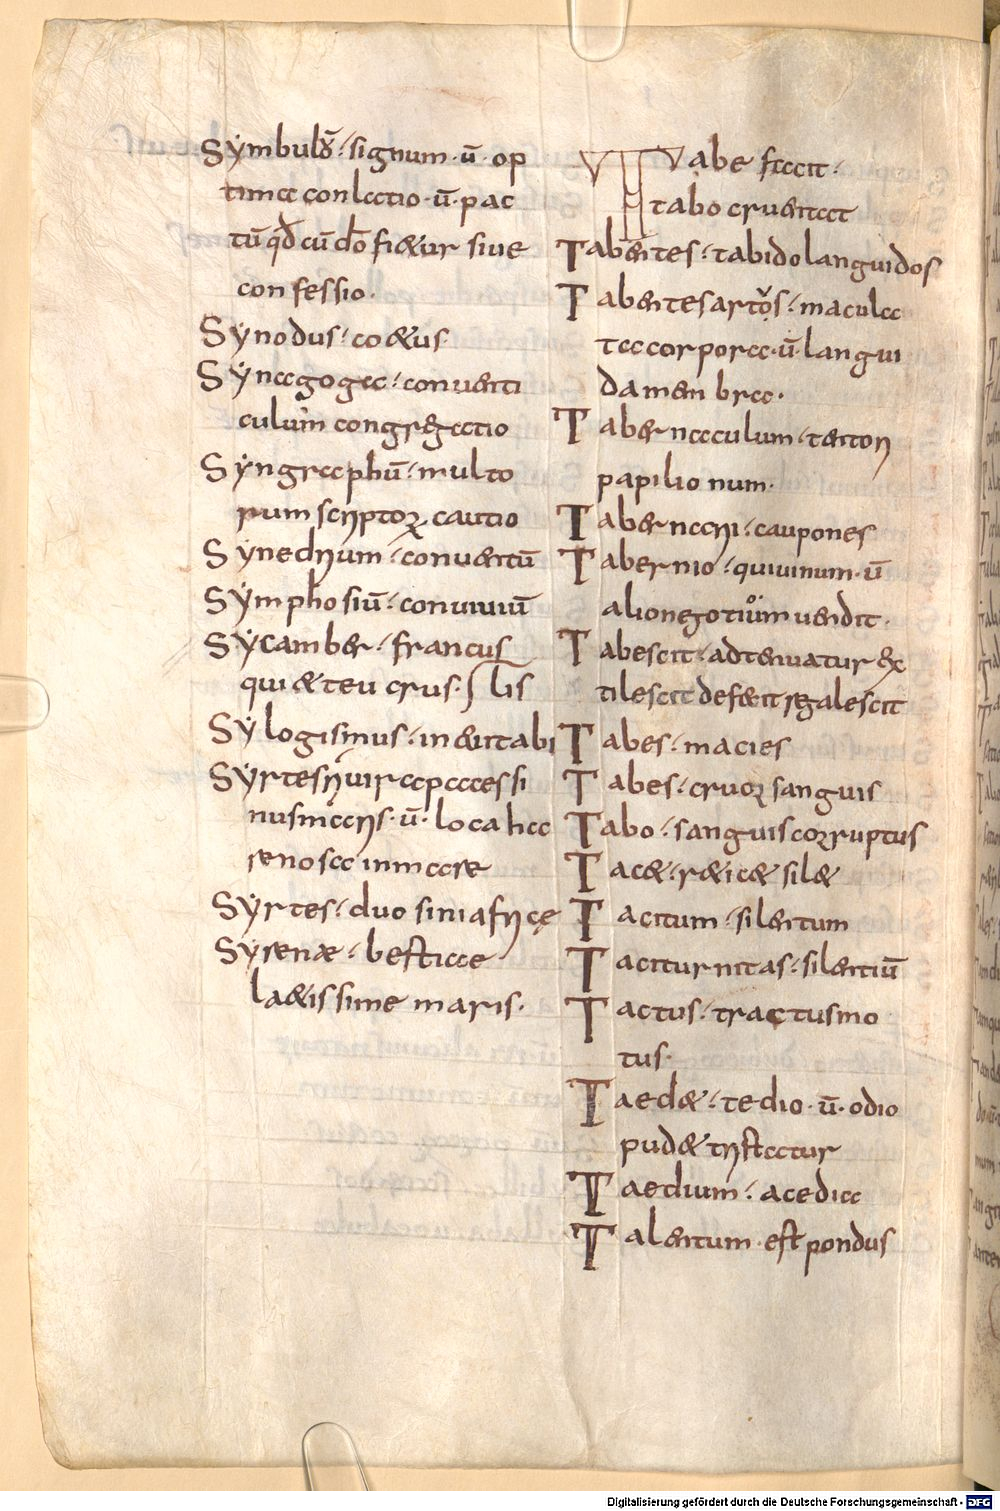 Symbulū · signum · ū · op
tima conlectio · ū · pac
tū q̄d cū do fidetur siue
confessio ·
Synodus · coetus
Synagoga · conuenti
culum congregatio
Syngraphū · multo
rum scriptorum cautio
Synedrium · conuentū
Symphosiū · conuiuiū
Sycamber · francus
qui et eucrus ·
Sylogismus · ineuitabi
lis
Syrtes
nusmaris · ū · loca hae
renosa in mare
Syrtes · duo sini africę
Syrenae · bestiae
laetissime maris ·
Tabe fecit ·
tabo cruentat
Tabentes · tabido languidos
Tabentes artos · macula
ta corpora · ū · langui
da menbra ·
Tabernaculum · tentori
papilionum ·
Tabernarii · caupones
Tabernio · qui uinum · ū
alio negotium uendit ·
Tabescit · adtenuatur ex
tilescit deficit regalescit
Tabes · macies
Tabes · cruor sanguis
Tabo · sanguis corruptus
Tacet · reticet silet
Tacitum · silentum
Taciturnitas · silentiū
Tactus · tractus mo
tus ·
Taedet · tedio · ū · odio
pudet tristatur
Taedium · acedia
Talentum · est pondus
Digitalisierung gefördert durch die Deutsche Forschungsgemeinschaft - DFG